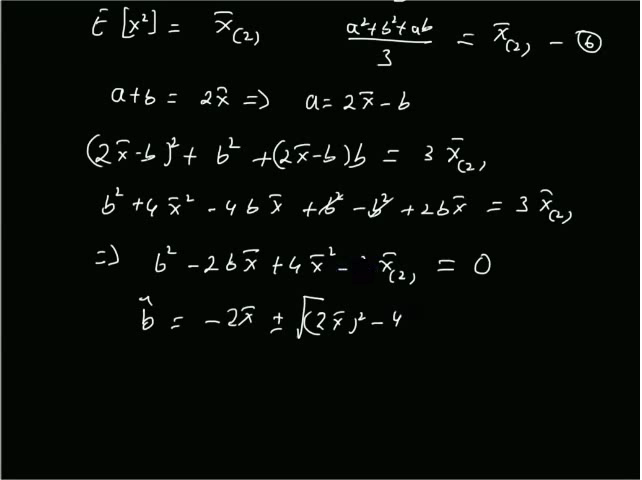 E[x²] = x̄₍₂₎   (a²+b²+ab)/3 = x̄₍₂₎ - ⑥
a+b = 2x̄ => a = 2x̄ - b
(2x̄-b)² + b² + (2x̄-b)b = 3 x̄₍₂₎
b² + 4x̄² - 4bx̄ + b² - b² + 2bx̄ = 3 x̄₍₂₎
=> b² - 2bx̄ + 4x̄² - x̄₍₂₎ = 0
b̂ = -2x̄ ± √(2x̄)² - 4